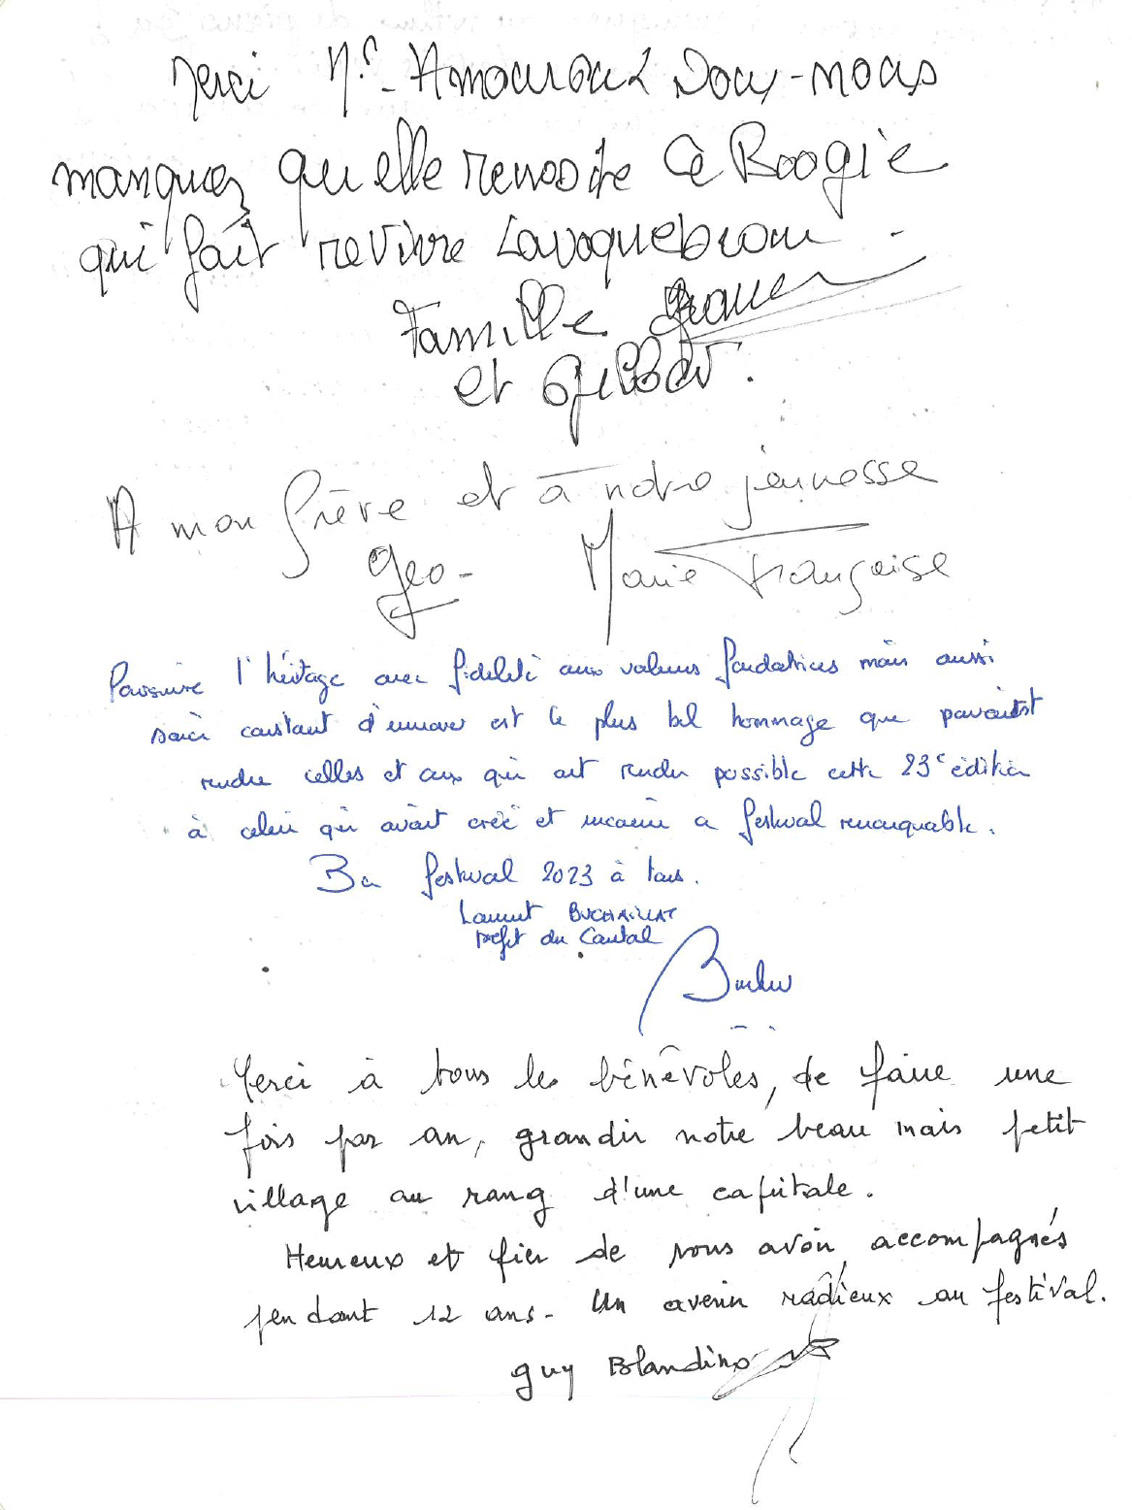 Merci Mr. Amouroux Vous-nous
manquez quelle réussite Ce Boogie
qui fait revivre Laroquebrou.
Famille
et Gilbert.
A mon frère et à notre jeunesse
Geo - Marie Françoise
Poursuivre l'héritage avec fidélité aux valeurs fondatrices mais aussi
souci constant d'innover est le plus bel hommage que pouvaient
rendre celles et ceux qui ont rendu possible cette 23e édition
à celui qui avait créé et incarné ce festival remarquable.
Bon festival 2023 à tous.
Laurent BUCHAILLAT
Préfet du Cantal
Merci à tous les bénévoles, de faire une
fois par an, grandir notre beau mais petit
village au rang d'une capitale.
Heureux et fier de vous avoir accompagnés
pendant 12 ans - Un avenir radieux au festival.
Guy Blandino